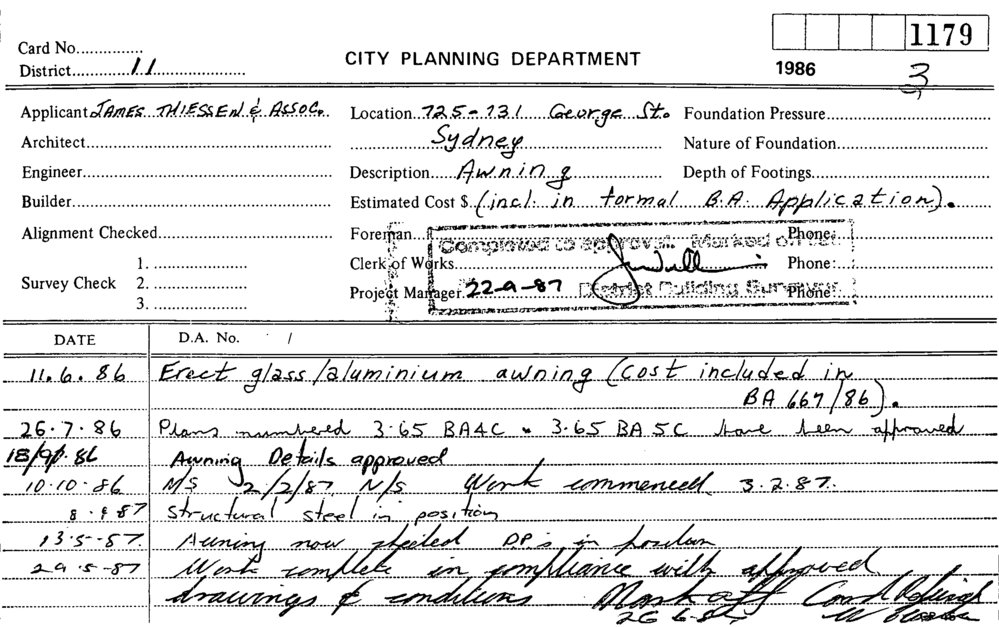 1179
Card No...............
CITY PLANNING DEPARTMENT
District............11......................
1986
3
Applicant JAMES THIESSEN & ASSOC. Location..725-731 George St. Foundation Pressure
Architect Sydney Nature of Foundation
Engineer Description Awning Depth of Footings
Builder Estimated Cost $ (incl. in formal B.A. Application).
Alignment Checked Foreman Phone:
Completed to approval. Marked off
Clerk of Works Phone:
Survey Check 1. 2. 3.
Project Manager 22-9-87 District Building Surveyor Phone
DATE D.A. No. /
11.6.86 Erect glass/aluminium awning (cost included in
BA 667/86).
26.7.86 Plans numbered 3.65 BA4C 3.65 BA 5C have been approved
18/9/.86 Awning Details approved
10.10.86 N/S 2/2/87 N/S Work commenced 3.2.87.
87 Structural steel in position
13.5.87. Awning now sheeted D.P.'s in position
29.5-87 Work complete in compliance with approved
drawings & conditions Mark off
26 6-87